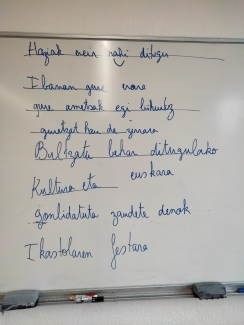 Haziak erein nahi ditugu
Ibaiaren gure
gure ametsak egi bihurtuz
guretzat hau da
Bultzatu behar ditugulako
Kultura eta euskara
gonbidatuta zaudete denok
Ikastolaren festara